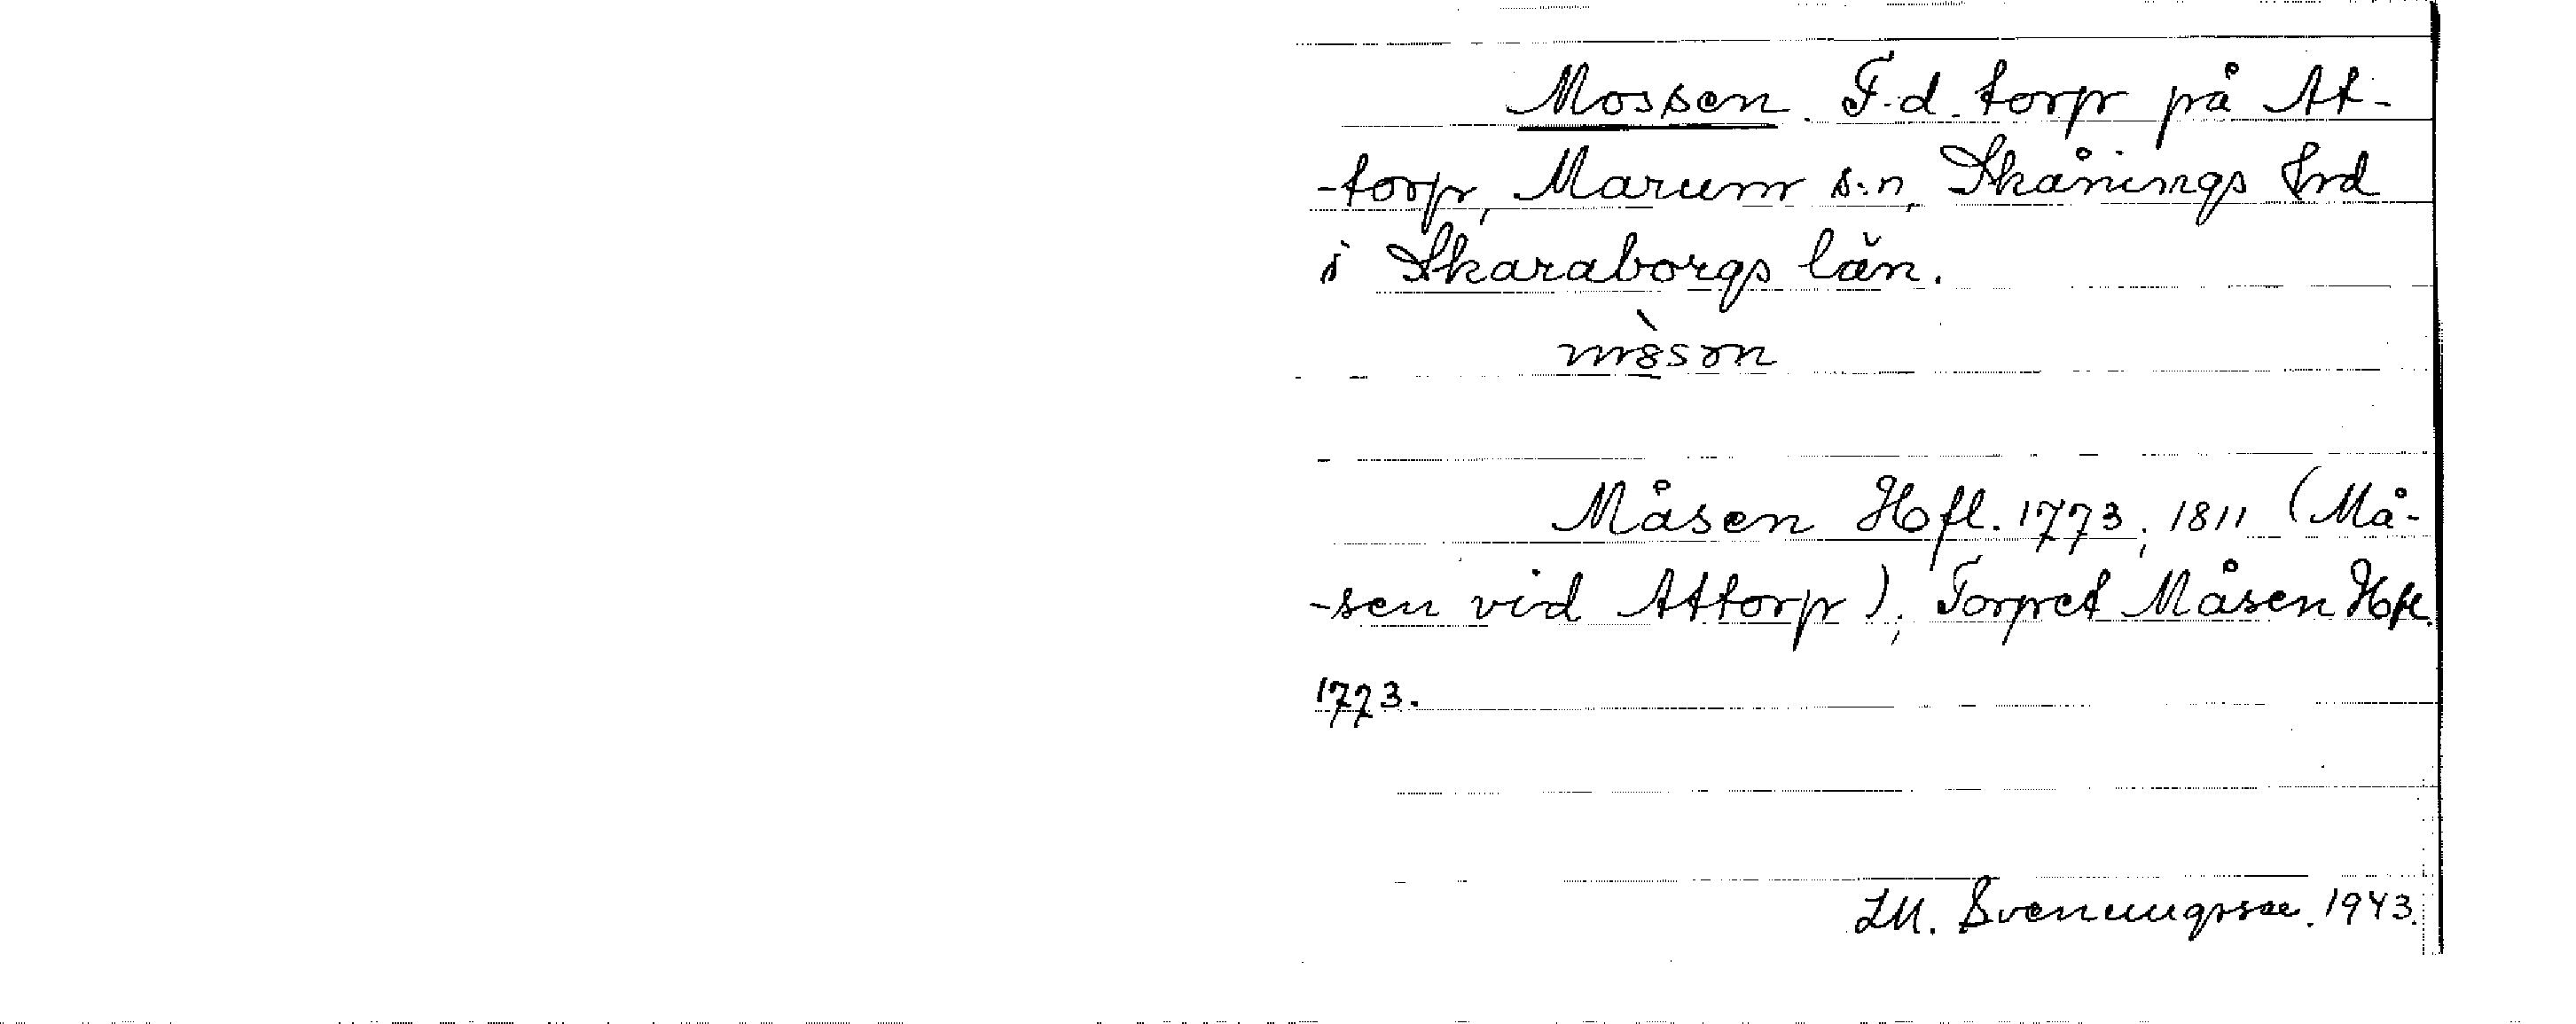 Mossen. F.d. torp på At-
-torp, Marum s:n, Skånings hrd
i Skaraborgs län.
Måsen Hfl. 1773; 1811 (Må-
-sen vid Attorp); Torpet Måsen Hfl.
1773.
I.M. Svenungsson. 1943.